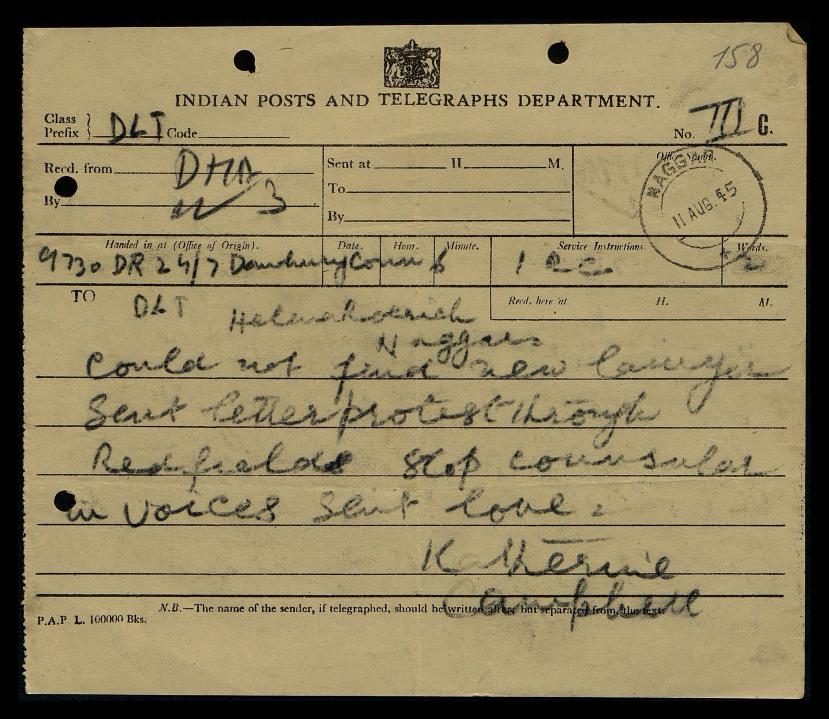 158
INDIAN POSTS AND TELEGRAPHS DEPARTMENT.
Class
Prefix } DLT Code
No. III C.
Recd. from DHA
By 3
Sent at H. M.
To
By
NAGGAR
11 AUG. 45
Handed in at (Office of Origin). Date. Hour. Minute. Service Instructions. Words.
9730 DR 24/7 Danbury Conn
TO
Recd. here at H. M.
DLT Helena Roerich
Naggar
Could not find new lawyer
Sent letter protest through
Redfields stop counsular
in voices sent love =
Katherine
Campbell
N.B.—The name of the sender, if telegraphed, should be written after, but separated from, the text.
P.A.P L. 100000 Bks.